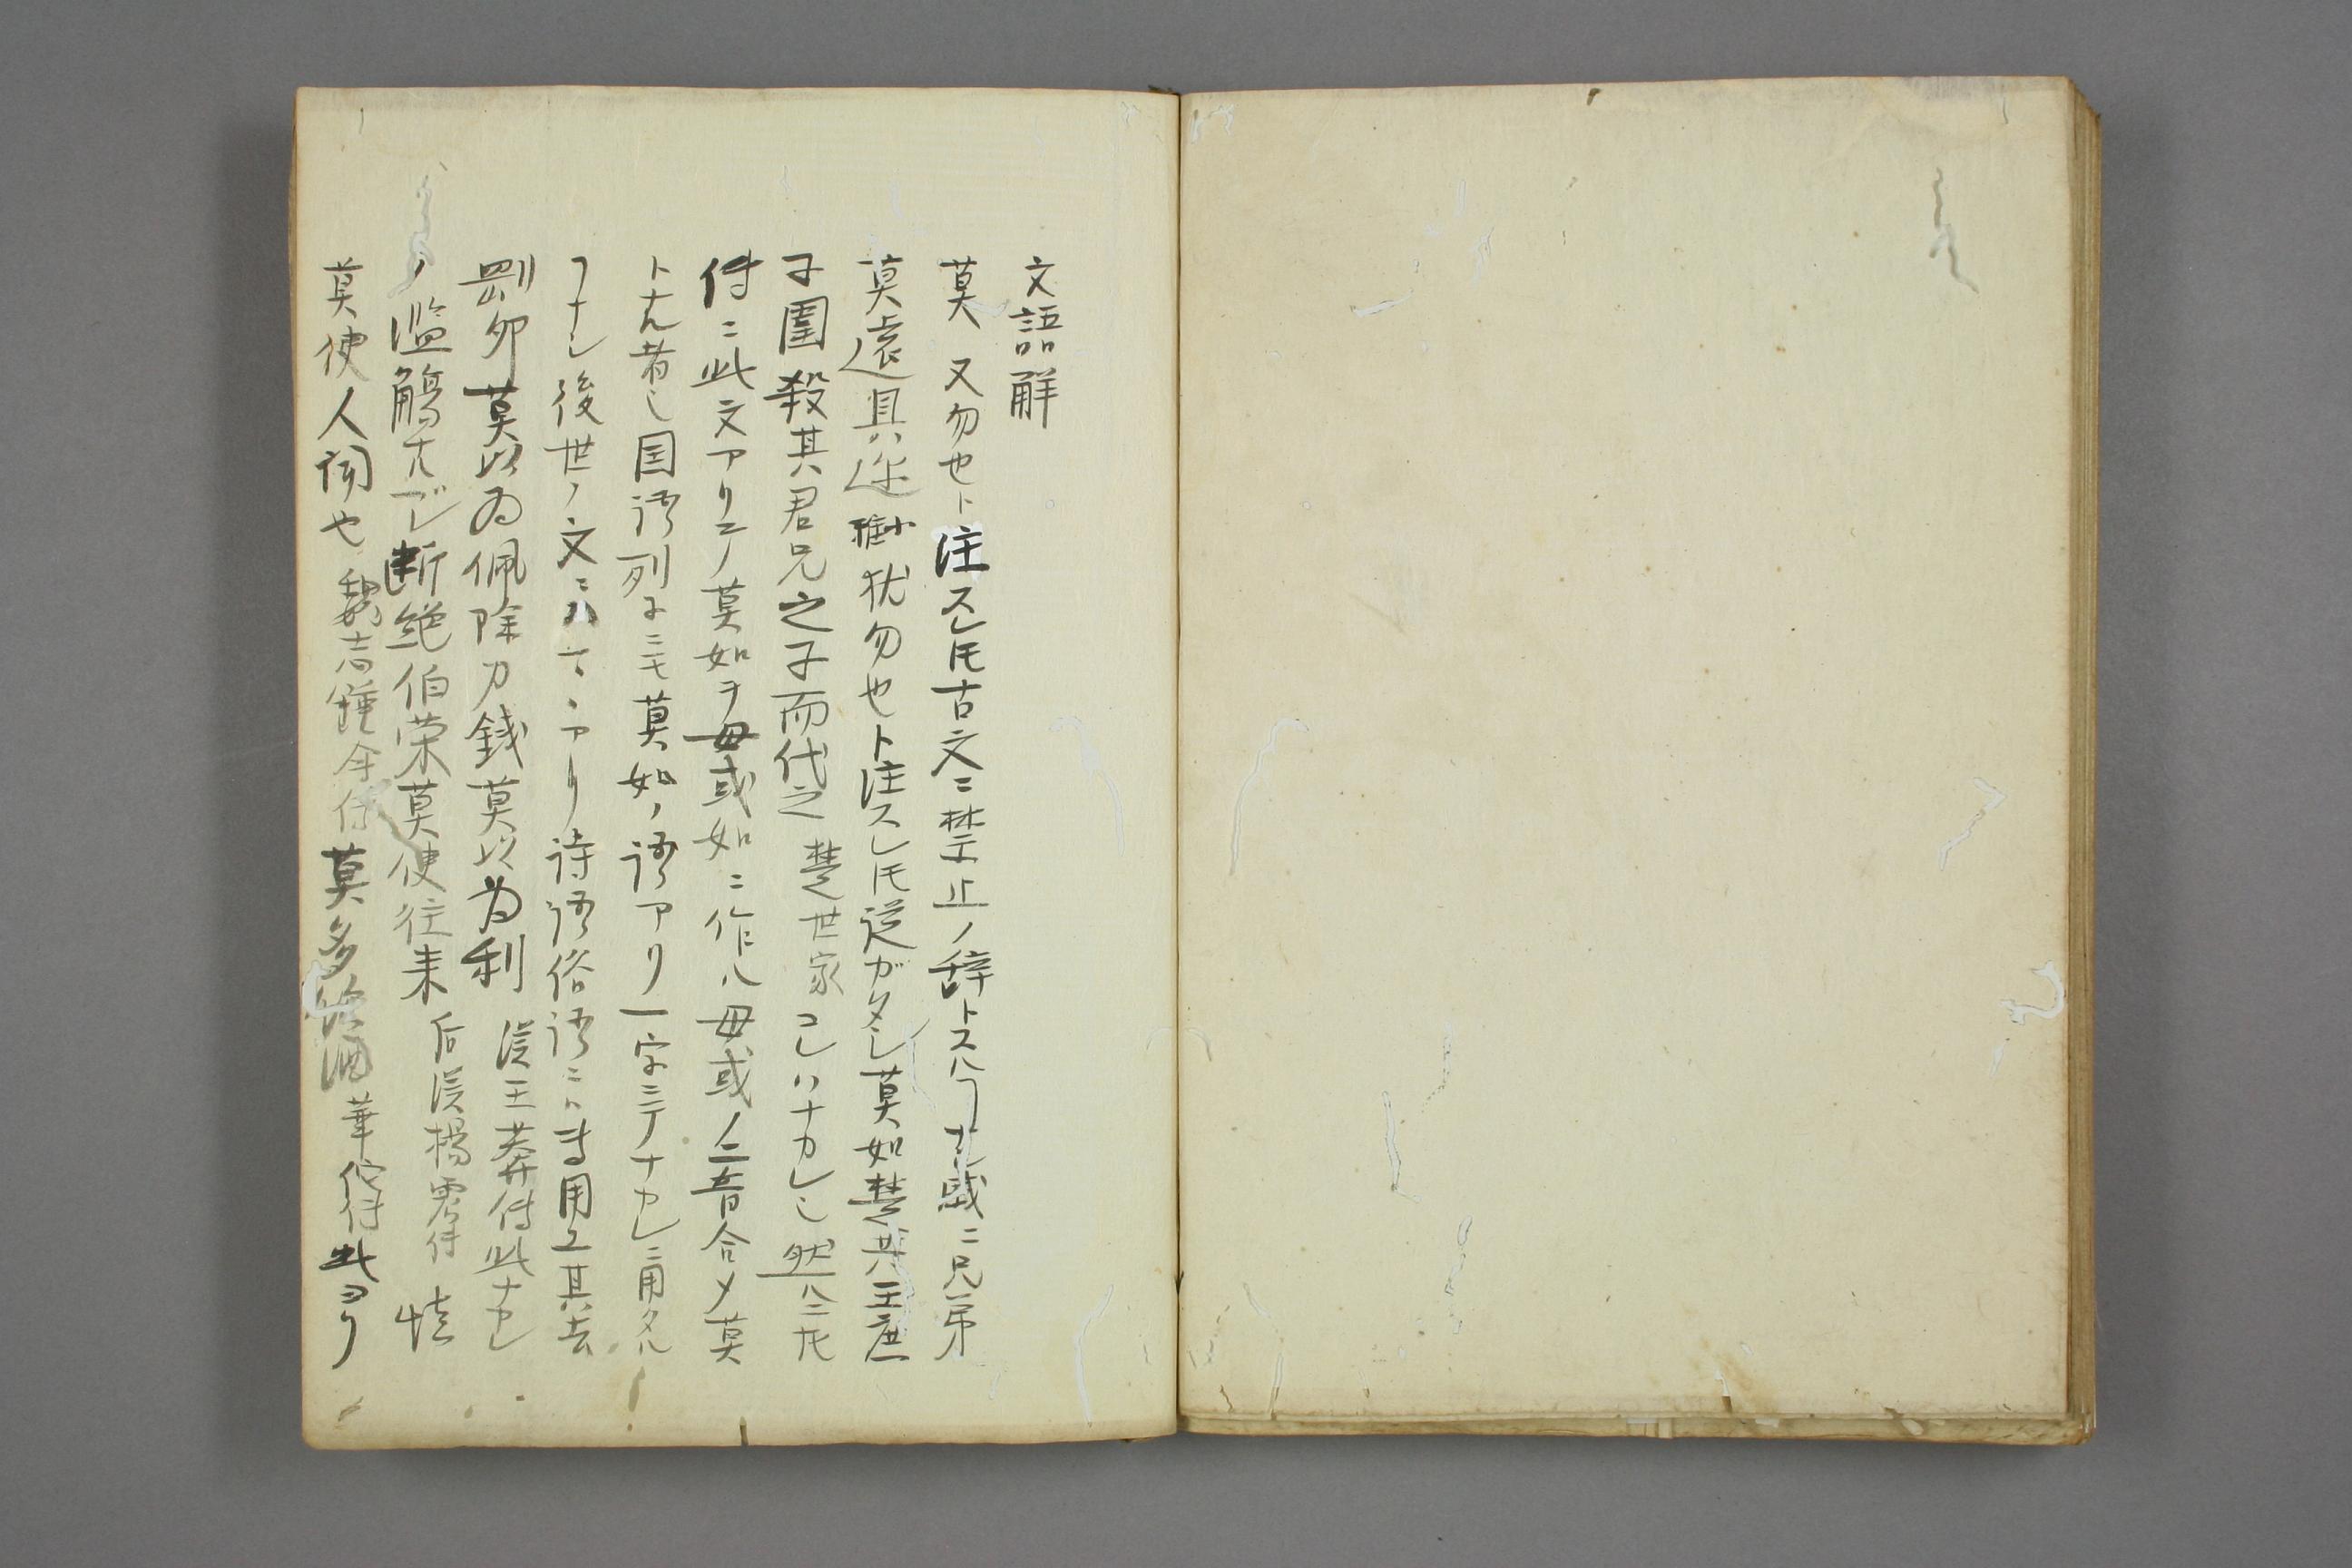 文語解
莫 又勿也ト注スレ𪜈古文ニ禁止ノ辞トスルヿナシ戚ニ兄弟
莫遠具迩鄭猶勿也ト注スレ𪜈従ガタシ莫如楚共王庶
子圍殺其君兄之子而代之 楚世家 コレハナカレ也然ルニ左
傳ニ此文アリテノ莫如ヲ毋或如ニ作ル毋或ノ二音合メ莫
トナル者也国語列子ニモ莫如ノ語アリ一字ニテナカレニ用タル
ヿナシ後世ノ文ニハ云云アリ詩語俗語ニハ専用ユ其去
剛卯莫以為佩除刀銭莫以為利 漢王莽傳 此ナカレ
ノ濫觴ナルベシ断絶伯栄莫使往来 后漢楊震傳 慎
莫使人聞也 魏志鍾会傳 莫多飲酒 華佗傳 此ヨリ